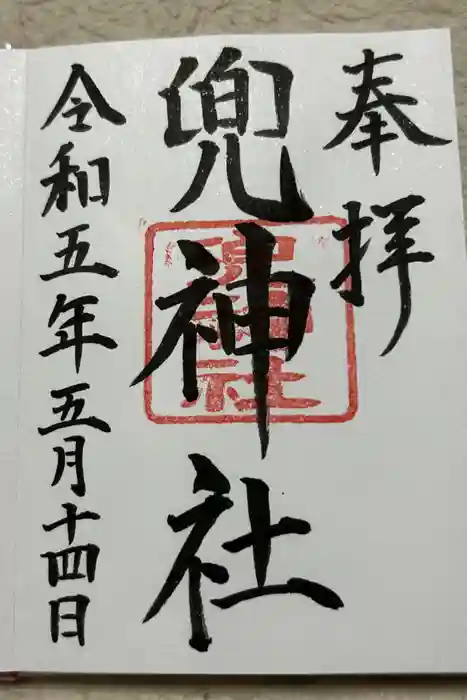 奉拝
兜神社
令和五年五月十四日